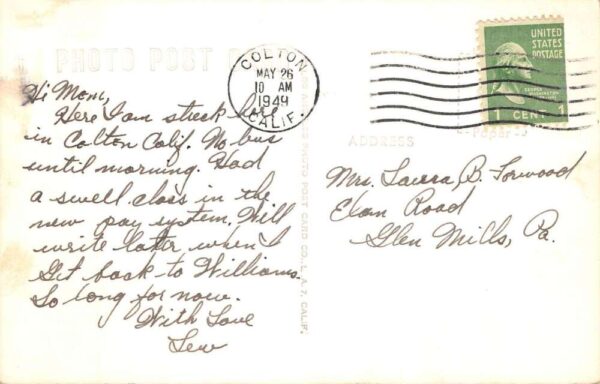 PHOTO POST
COLTON
MAY 26
10 AM
1949
CALIF.
UNITED
STATES
POSTAGE
GEORGE
WASHINGTON
1 CENT 1
Hi Mom,
Here I am stuck here
in Colton Calif. No bus
until morning. Had
a swell class in the
new pay system. Will
write later when I
Get back to Williams.
So long for now.
With Love
Lew
PHOTO POST CARD CO., L. A. 7, CALIF.
ADDRESS
Mrs. Laura B. Forwood
Elam Road
Glen Mills, Pa.